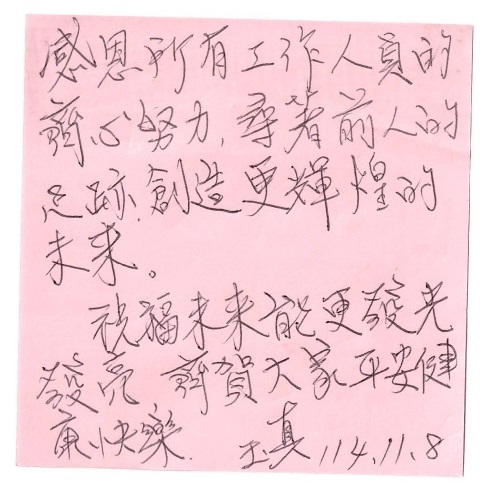 感恩所有工作人員的
齊心努力,尋著前人的
足跡,創造更輝煌的
未來。
祝福未來能更發光
發亮 齊賀大家平安健
康快樂. 玉真 114.11.8